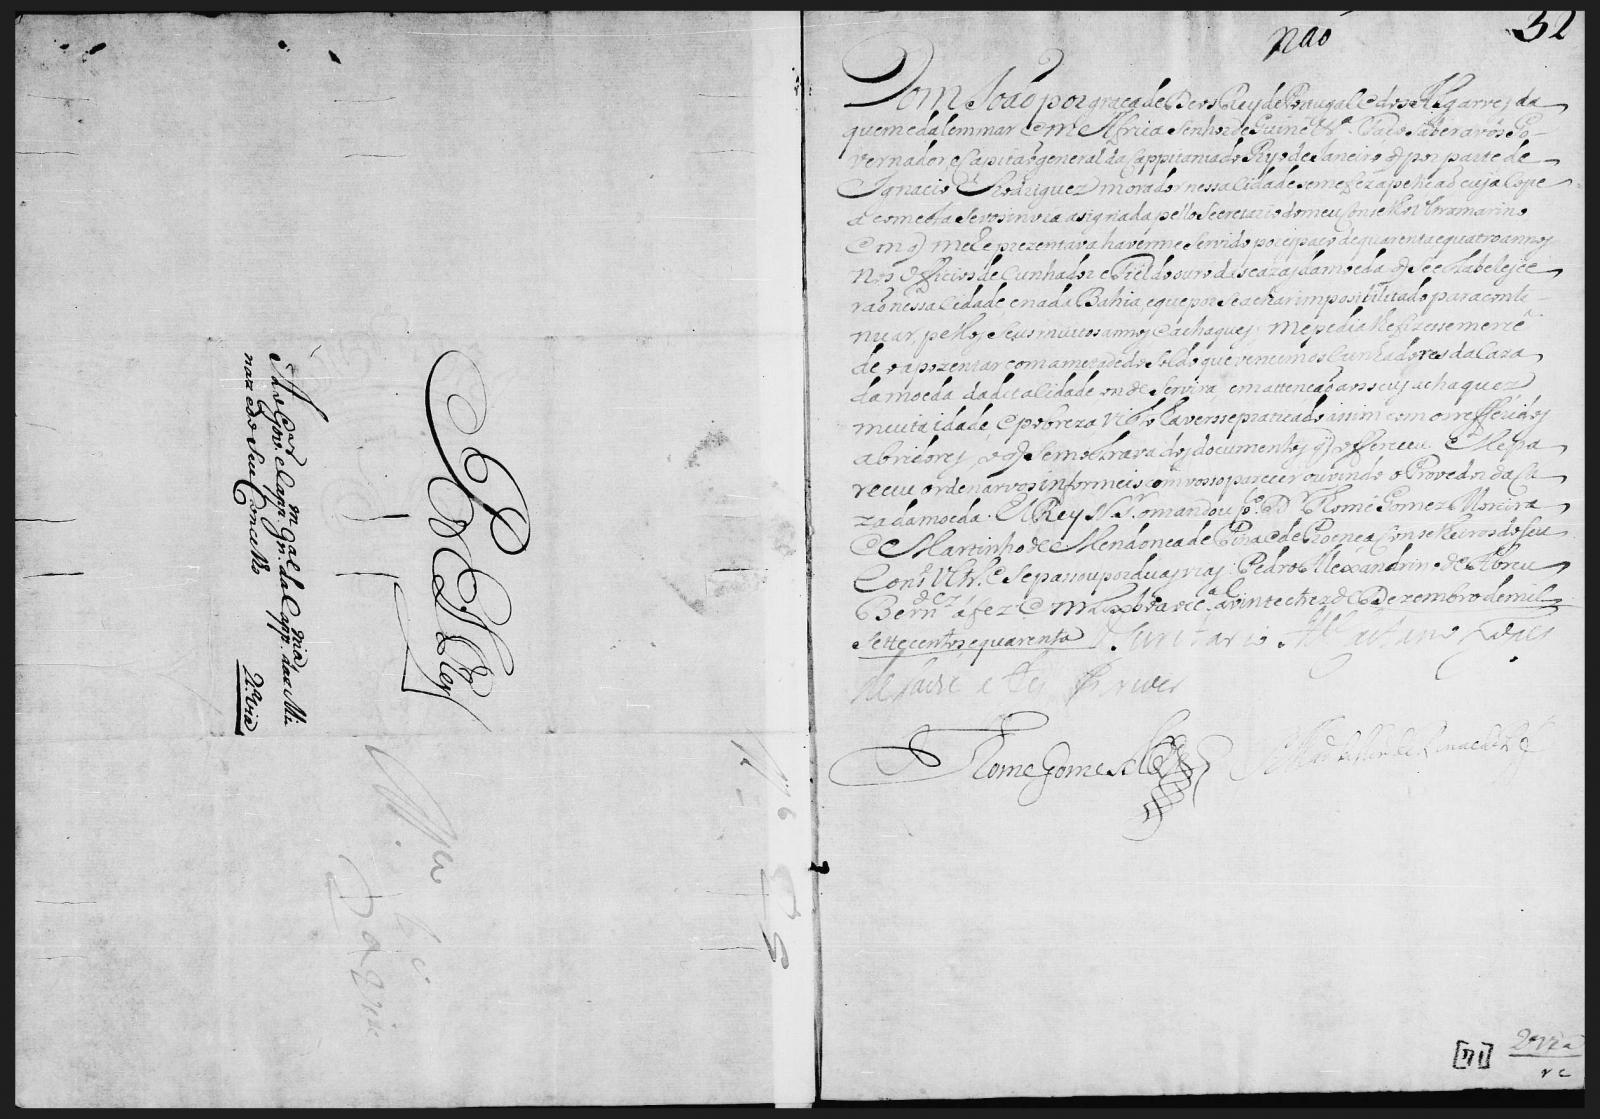 Ao Gov.or e Capp.m gn.al da Capp.nia das Mi
nas e do seu Concelho
2.a via
Por
El Rey
32
Não
Dom João por graça de Deos Rey de Portugal e dos Algarves da
quem e dalem mar em Africa Senhor de Guiné &.a Faço saber a vós Go-
vernador e Capitão general da Cappitania do Ryo de Janeiro q por parte de
Ignacio Rodriguez morador nessa Cidade se me fez a petição cuja Copi
a com esta se vos invia asignada pello Secretario do meu Conselho Ultramarino
em q me reprezentava haverme servido por espaço de quarenta e quatro annos
nos officios de Cunhador e Fiel do ouro das cazas da moeda q se estabelece
rão nessa Cidade e na da Bahia, e que por se achar imposibilitado para conti-
nuar, pellos seus muitos annos e achaques, me pedia lhe fizesse mercê
de o apozentar com ametade do soldo que vencem os Cunhadores da Caza
da moeda da dita Cidade onde servira em attenção aos seus achaquez
muita idade, e pobreza visto haverse praticado assim com os refferidos
abridores, o q se mostrava dos documentos q offerecia. E me pa
receu ordenarvos informeis com vosso parecer ouvindo o Provedor da Ca
za da moeda. El Rey N. S.r o mandou p.lo D.r Thomé Gomez Moreira
e Martinho de Mendonça de Pina e de Proença Conselheiros do seu
Cons.o Ultr.o e se passou por duas vias. Pedro Alexandrino de Abreu
Bern.des a fez em Lx.a occ.al a vinte e trez de Dezembro de mil
settecentos e quarenta
a fez escrever
Thome Gomes Mor.a
[71]
2.a via